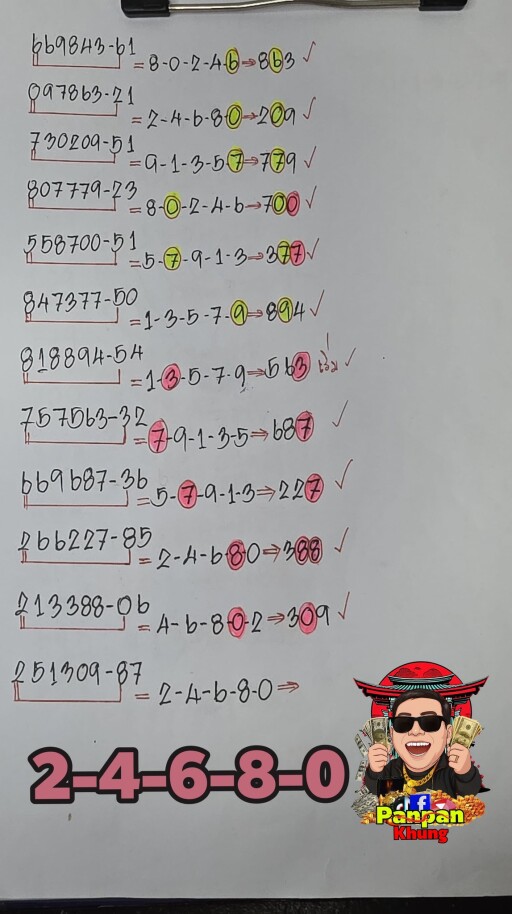 669843-61 = 8-0-2-4-6⇒863 ✓
097863-21 = 2-4-6-8-0⇒209 ✓
730209-51 = 9-1-3-5-7⇒779 ✓
807779-23 = 8-0-2-4-6⇒700 ✓
558700-51 = 5-7-9-1-3⇒377 ✓
847377-50 = 1-3-5-7-9⇒894 ✓
818894-54 = 1-3-5-7-9⇒563 ✓
757563-32 = 7-9-1-3-5⇒687 ✓
669687-36 = 5-7-9-1-3⇒227 ✓
266227-85 = 2-4-6-8-0⇒388 ✓
213388-06 = 4-6-8-0-2⇒309 ✓
251309-87 = 2-4-6-8-0⇒
2-4-6-8-0
Panpan
Khung